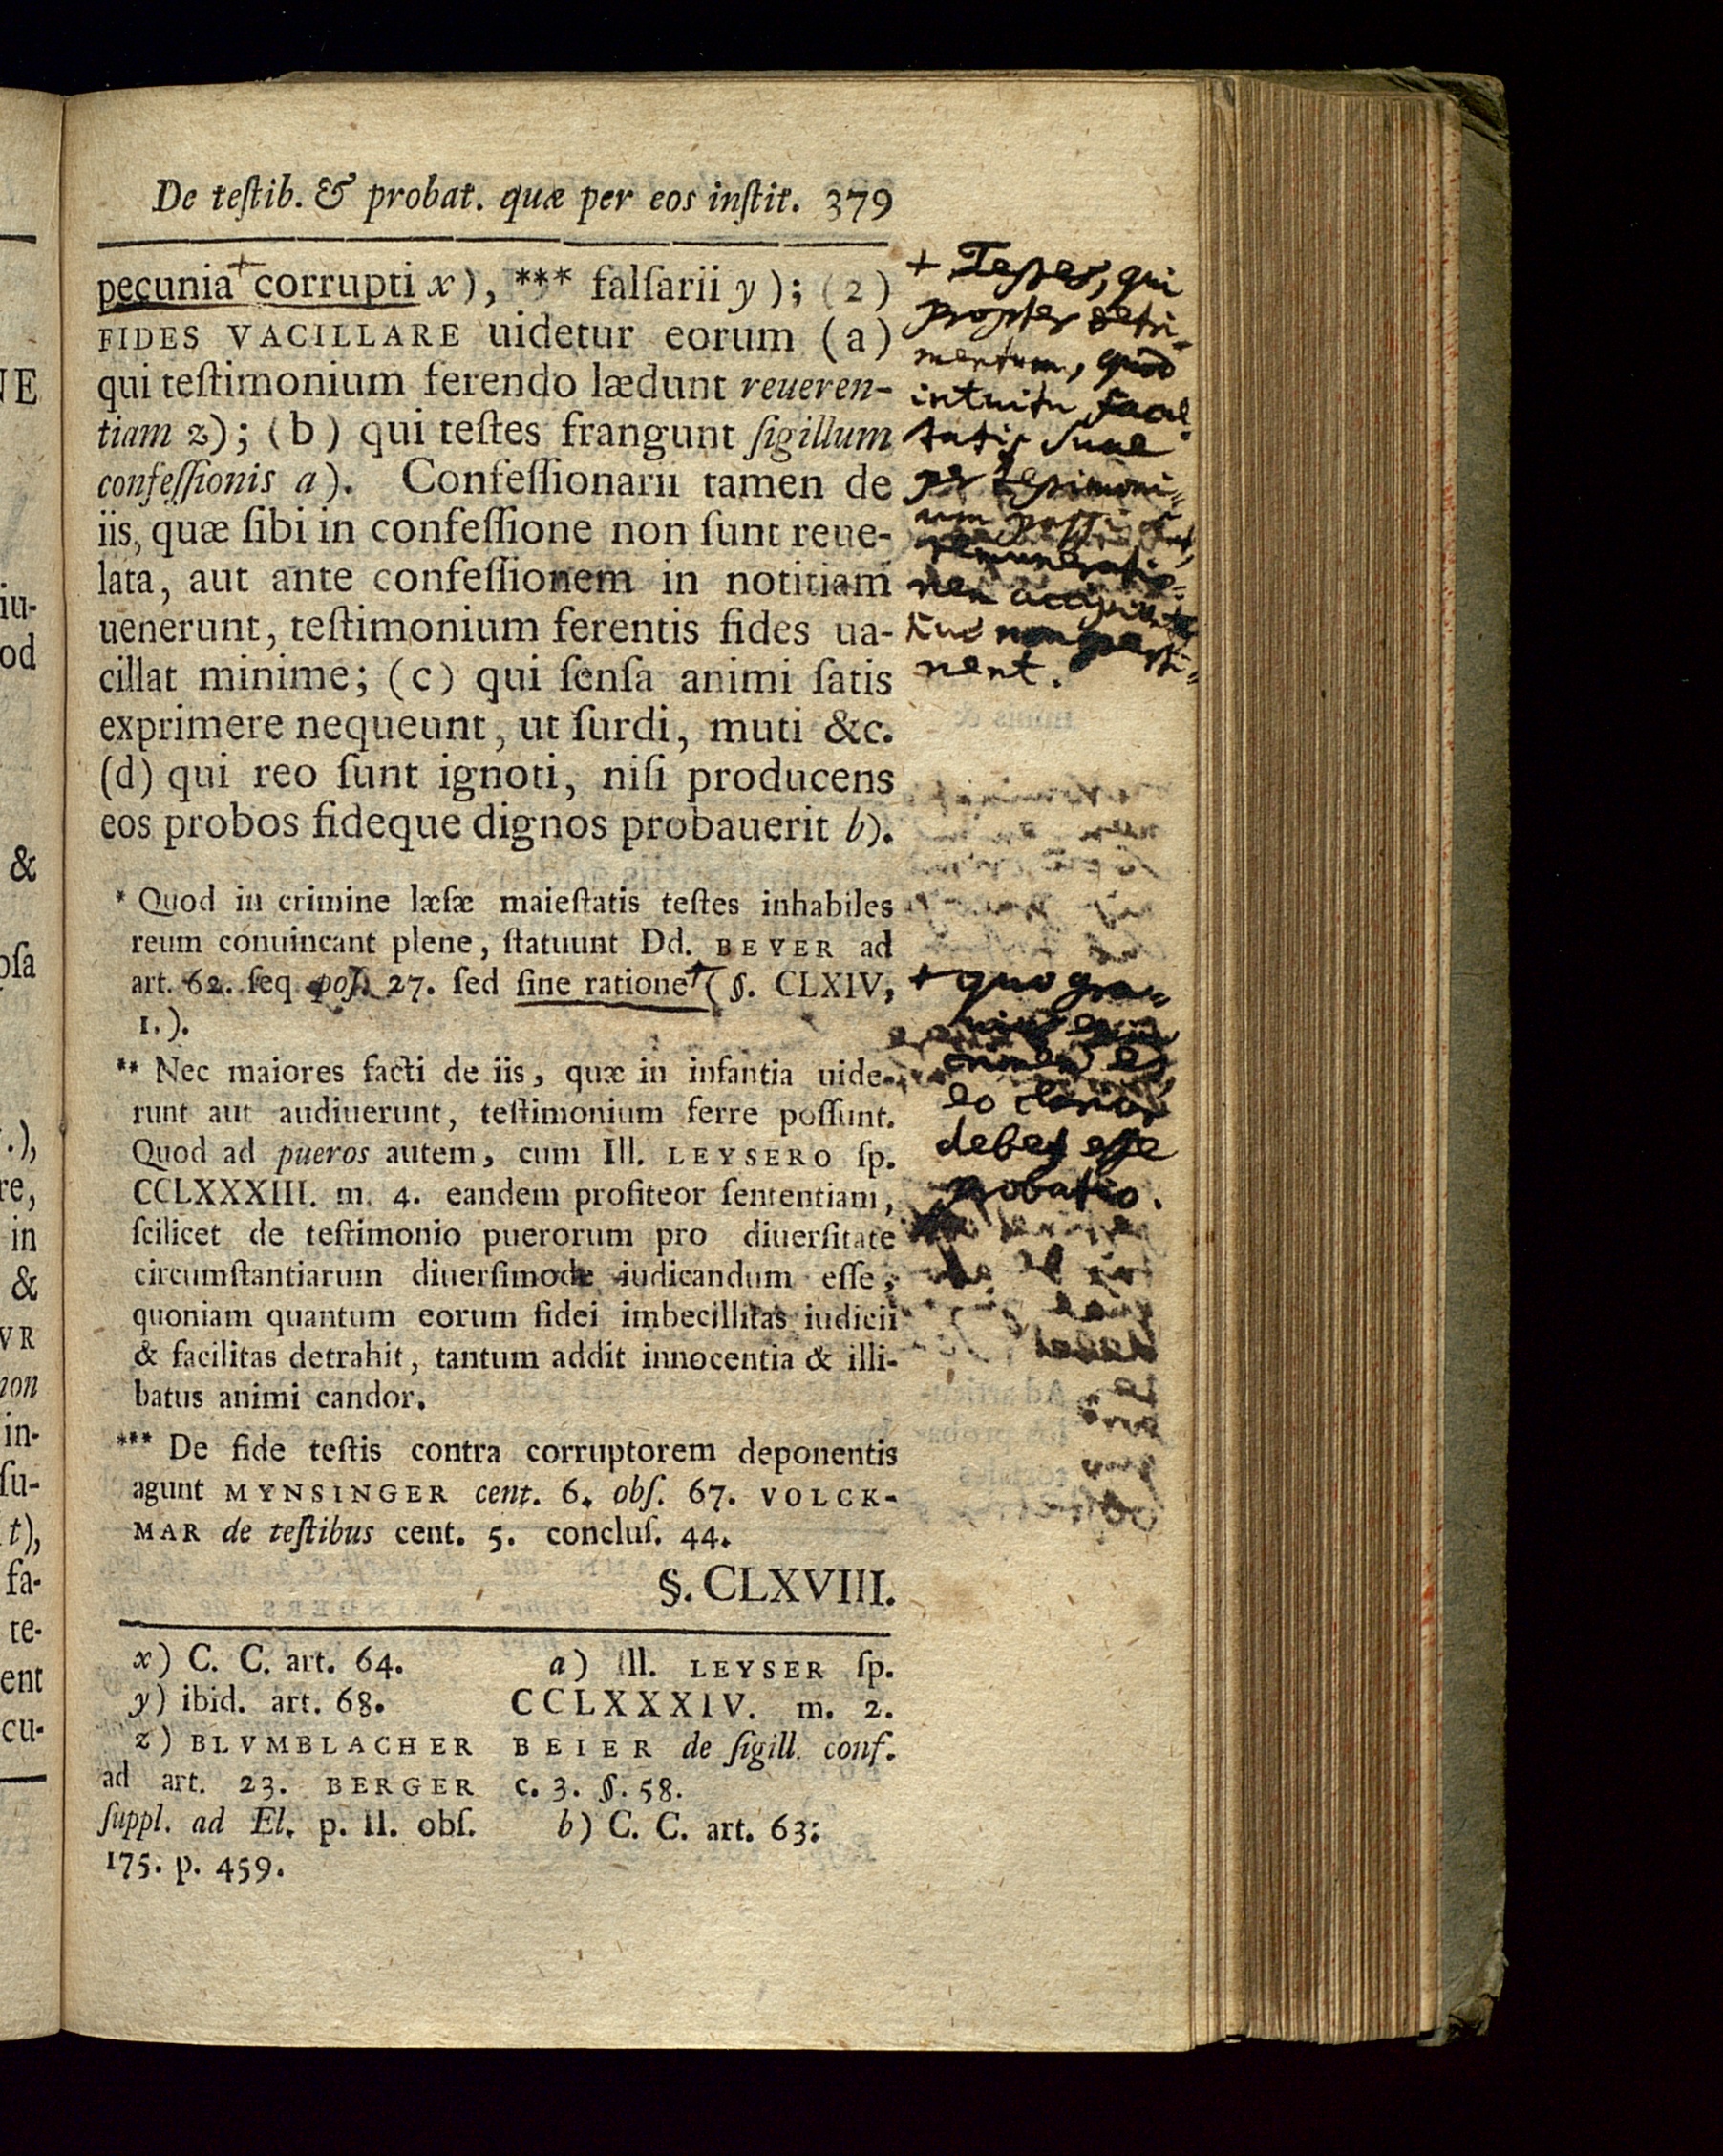 De teſtib. & probat. quæ per eos inſtit. 379
pecunia + corrupti x), *** falſarii y); (2)
FIDES VACILLARE uidetur eorum (a)
qui teſtimonium ferendo lædunt reueren-
tiam z); (b) qui teſtes frangunt ſigillum
confeſſionis a). Confeſſionarii tamen de
iis, quæ ſibi in confeſſione non ſunt reue-
lata, aut ante confeſſionem in notitiam
uenerunt, teſtimonium ferentis fides ua-
cillat minime; (c) qui ſenſa animi ſatis
exprimere nequeunt, ut ſurdi, muti &c.
(d) qui reo ſunt ignoti, niſi producens
eos probos fideque dignos probauerit b).
+ Testes, qui
propter detri-
mentum, quod
intuitu facul
tatis suae
per testimoni=
um passi sunt,
remuneratio=
nem accipiunt
huc non perti=
nent.
* Quod in crimine læſæ maieſtatis teſtes inhabiles
reum conuincant plene, ſtatuunt Dd. BEYER ad
art. 62. ſeq poſ. 27. ſed ſine ratione + (§. CLXIV,
1.).
** Nec maiores facti de iis, quæ in infantia uide-
runt aut audiuerunt, teſtimonium ferre poſſunt.
Quod ad pueros autem, cum Ill. LEYSERO ſp.
CCLXXXIII. m. 4. eandem profiteor ſententiam,
ſcilicet de teſtimonio puerorum pro diuerſitate
circumſtantiarum diuerſimode iudicandum eſſe,
quoniam quantum eorum fidei imbecillitas iudicii
& facilitas detrahit, tantum addit innocentia & illi-
batus animi candor.
*** De fide teſtis contra corruptorem deponentis
agunt MYNSINGER cent. 6. obſ. 67. VOLCK-
MAR de teſtibus cent. 5. concluſ. 44.
+ quo gra=
eo clarior
debet esse
probatio.
§. CLXVIII.
x) C. C. art. 64.
y) ibid. art. 68.
z) BLVMBLACHER
ad art. 23. BERGER
ſuppl. ad El. p. II. obſ.
175. p. 459.
a) Ill. LEYSER ſp.
CCLXXXIV. m. 2.
BEIER de ſigill. conf.
c. 3. §. 58.
b) C. C. art. 63.
NE
iu-
od
&
pſa
.),
re,
in
&
VR
non
in-
ſu-
t),
fa-
te-
ent
cu-